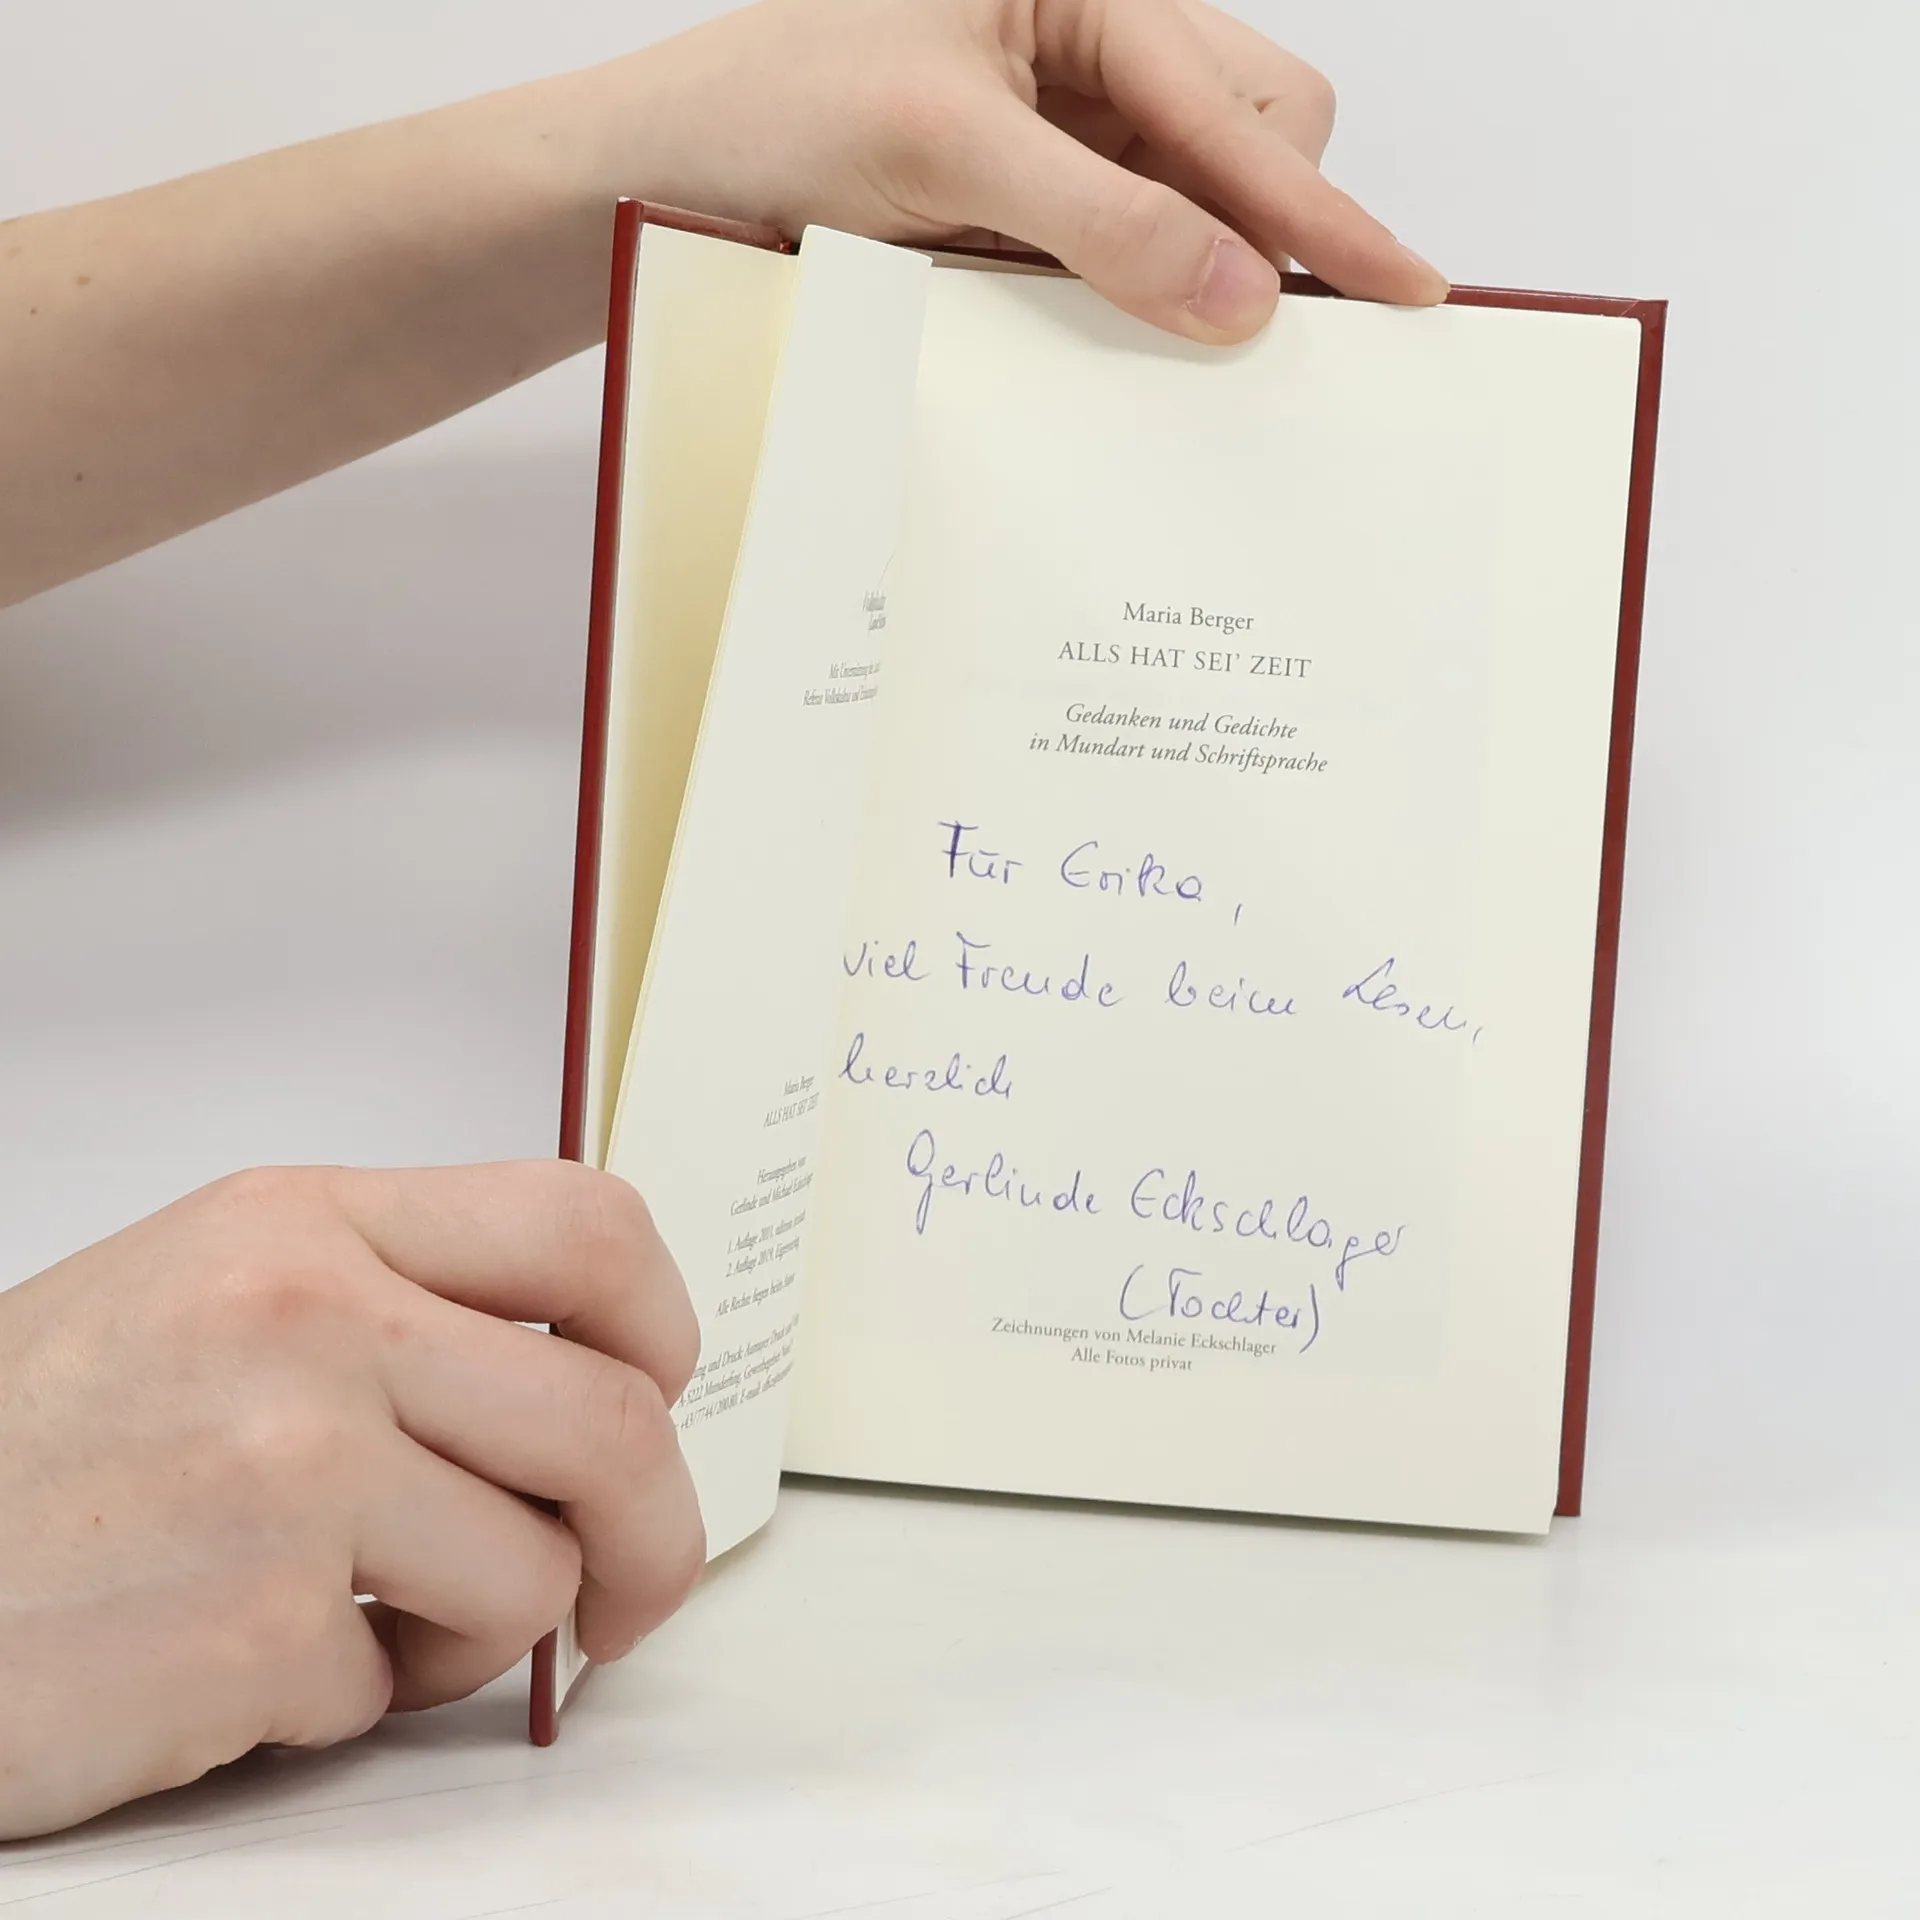 Mit Unterstützung
Referat Volkskultur und
Maria Berger
ALLS HAT SEI' ZEIT
Herausgegeben von
Gerlinde und Michael
1. Auflage 2011, edition
2. Auflage 2019, Eigenverlag
Alle Rechte liegen beim Autor
und Druck: Aumayer Druck und
A-5222 Munderfing, Gewerbegebiet Nord
+43/7744/20080, E-Mail:
Maria Berger
ALLS HAT SEI' ZEIT
Gedanken und Gedichte
in Mundart und Schriftsprache
Für Erika,
viel Freude beim Lesen,
herzlich
Gerlinde Eckschlager
(Tochter)
Zeichnungen von Melanie Eckschlager
Alle Fotos privat